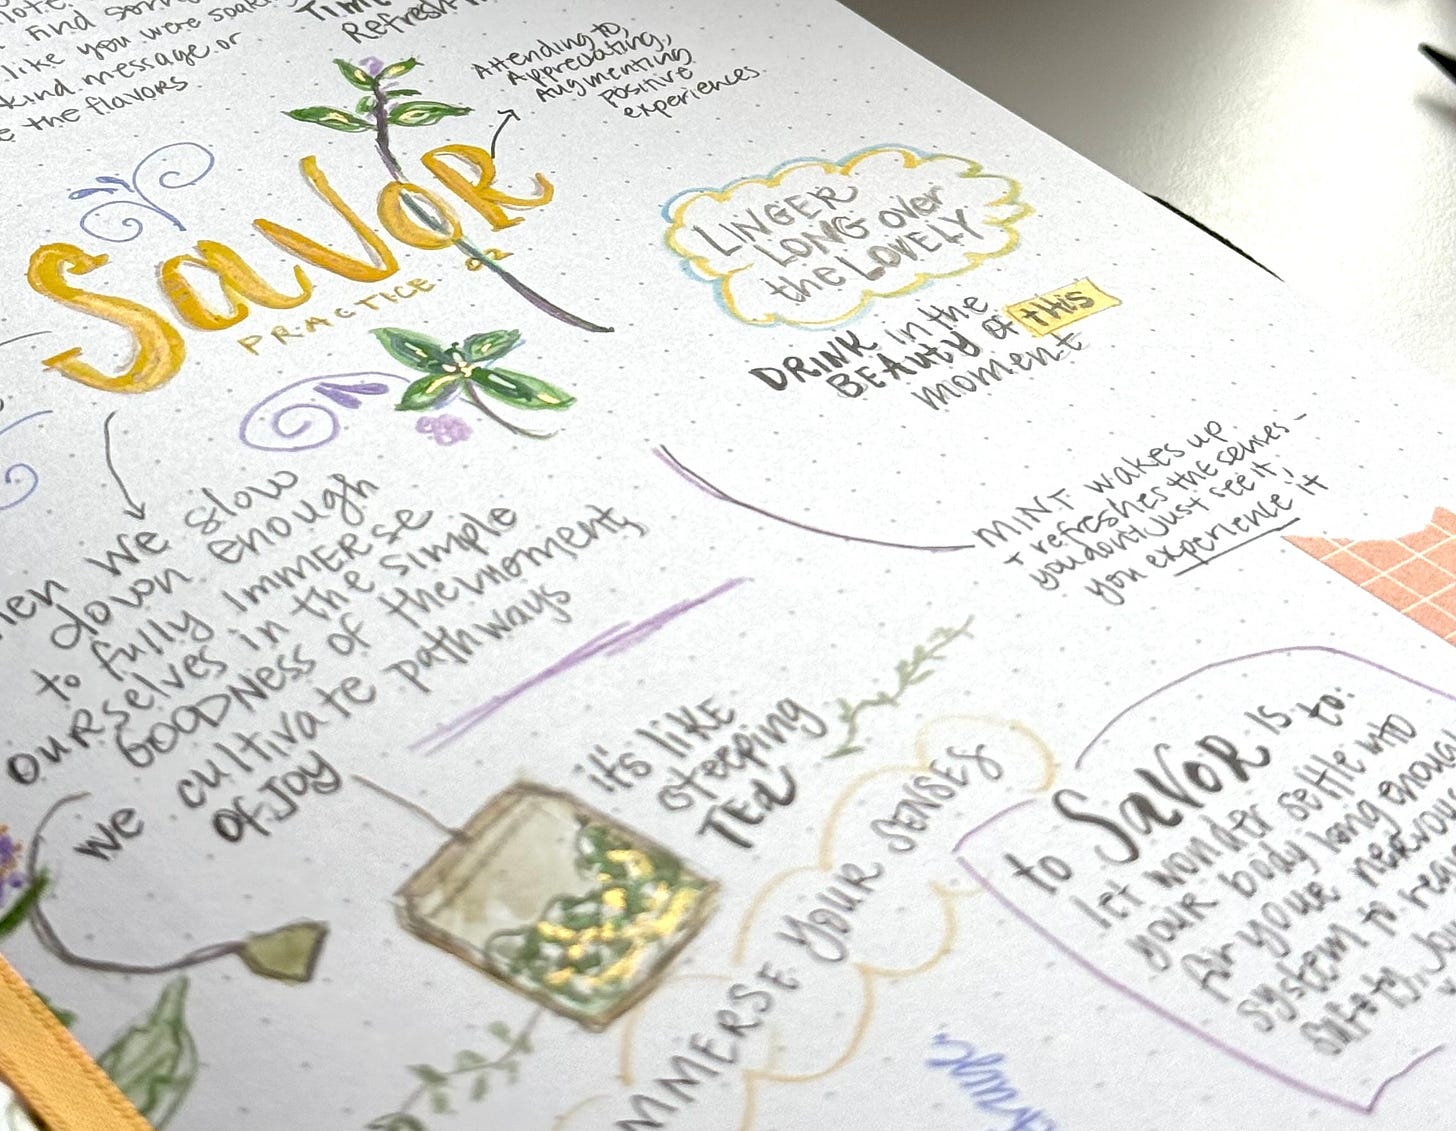 find
like you were
kind message or
the flavors
Refresh
Attending to,
Appreciating,
Augmenting
positive
experiences.
SavoR
PRACTICE 02
LINGER
LONG over
the LOVELY
DRINK in the
BEAUTY OF this
moment
MINT wakes up
+ refreshes the senses -
you don't just see it,
you experience it
we slow
down enough
to fully immerse
ourselves in the simple
GOODNESS of the moments,
we cultivate pathways
of Joy
it's like
steeping
TEa
IMMERSE YOUR SENSES
to SavoR is
to:
let wonder settle into
your body long enough
for your nervous
system to
safety,